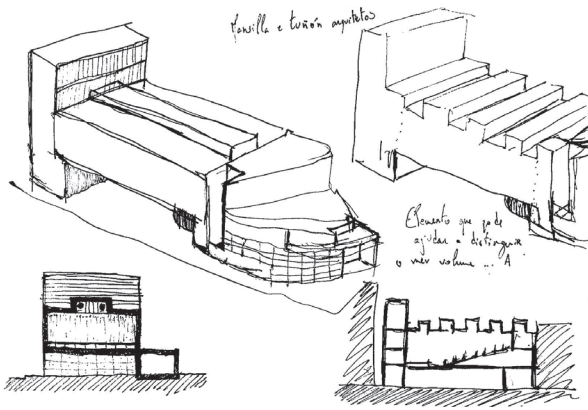 Mansilla e tuñón arquitetos
Elemento que pode
ajudar a distinguir
o meu volume ... A